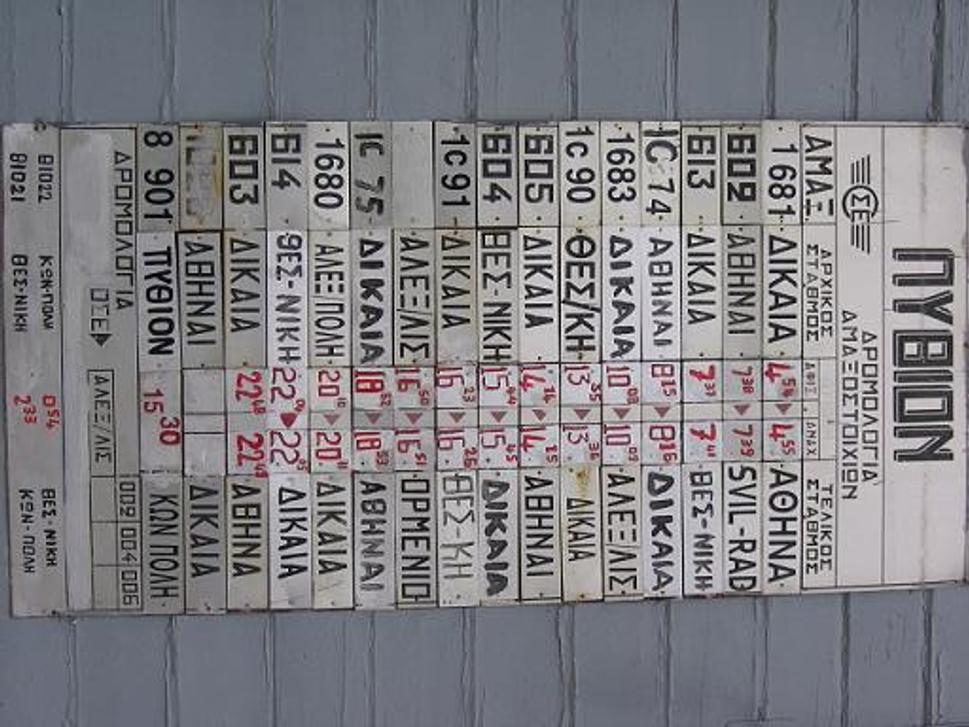 ΠΥΘΙΟΝ
ΟΣΕ ΔΡΟΜΟΛΟΓΙΑ
ΑΜΑΞΟΣΤΟΙΧΙΩΝ
ΑΜΑΞ ΑΡΧΙΚΟΣ ΣΤΑΘΜΟΣ ΑΦΙΞ. ΑΝΑΧ ΤΕΛΙΚΟΣ ΣΤΑΘΜΟΣ
1681 ΔΙΚΑΙΑ 4 54 4 55 ΑΘΗΝΑ
602 ΑΘΗΝΑΙ 7 38 7 39 SVIL-RAD
613 ΔΙΚΑΙΑ 7 39 7 41 ΘΕΣ-ΝΙΚΗ
IC 74 ΑΘΗΝΑΙ 8 15 8 16 ΔΙΚΑΙΑ
1683 ΔΙΚΑΙΑ 10 08 10 09 ΑΛΕΞ/ΛΙΣ
1c 90 ΘΕΣ/ΚΗ 13 35 13 36 ΔΙΚΑΙΑ
605 ΔΙΚΑΙΑ 14 14 14 15 ΑΘΗΝΑΙ
604 ΘΕΣ-ΝΙΚΗ 15 44 15 45 ΔΙΚΑΙΑ
1c91 ΔΙΚΑΙΑ 16 23 16 25 ΘΕΣ-ΚΗ
ΑΛΕΞ/ΛΙΣ 16 50 16 51 ΟΡΜΕΝΙΟ
IC 75 ΔΙΚΑΙΑ 18 52 18 53 ΑΘΗΝΑΙ
1680 ΑΛΕΞ/ΠΟΛΗ 20 10 20 11 ΔΙΚΑΙΑ
614 ΘΕΣ-ΝΙΚΗ 22 04 22 05 ΔΙΚΑΙΑ
603 ΔΙΚΑΙΑ 22 48 22 49 ΑΘΗΝΑ
ΑΘΗΝΑΙ ΔΙΚΑΙΑ
8 901 ΠΥΘΙΟΝ 15 30 ΚΩΝ ΠΟΛΗ
ΔΡΟΜΟΛΟΓΙΑ ΟΣΕ ΑΛΕΞ/ΛΙΣ 002 004 006
81022 ΚΩΝ-ΠΟΛΗ 0 54 ΘΕΣ-ΝΙΚΗ
81021 ΘΕΣ-ΝΙΚΗ 2 33 ΚΩΝ-ΠΟΛΗ